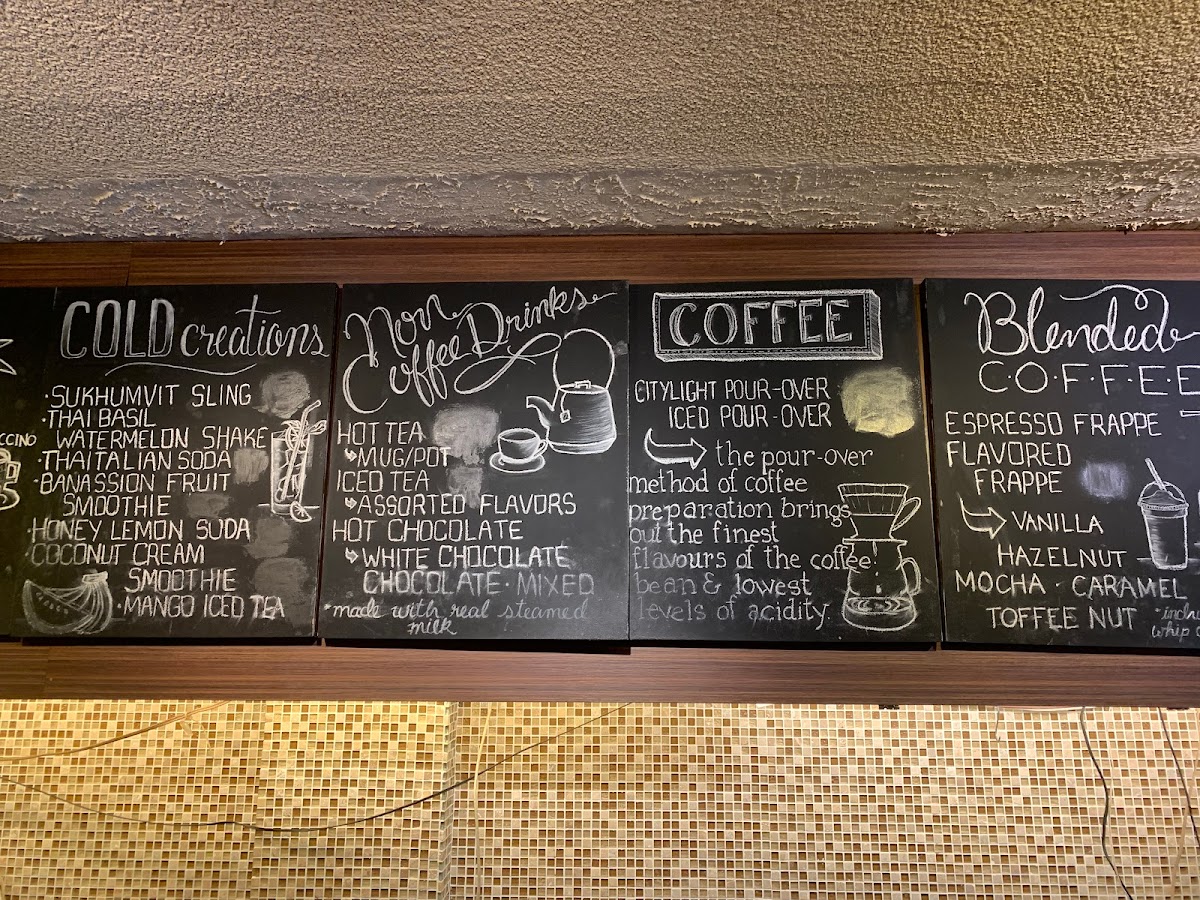 CCINO
COLD creations
·SUKHUMVIT SLING
·THAI BASIL
WATERMELON SHAKE
·THAITALIAN SODA
·BANASSION FRUIT
SMOOTHIE
·HONEY LEMON SUDA
·COCONUT CREAM
SMOOTHIE
·MANGO ICED TEA
Non
Coffee Drinks
HOT TEA
MUG/POT
ICED TEA
ASSORTED FLAVORS
HOT CHOCOLATE
WHITE CHOCOLATE
CHOCOLATE · MIXED
*made with real steamed
milk
COFFEE
CITYLIGHT POUR-OVER
ICED POUR-OVER
the pour-over
method of coffee
preparation brings
out the finest
flavours of the coffee
bean & lowest
levels of acidity.
Blended
C·O·F·F·E·E
ESPRESSO FRAPPE
FLAVORED
FRAPPE
VANILLA
HAZELNUT
MOCHA · CARAMEL
TOFFEE NUT
*inclu
whip